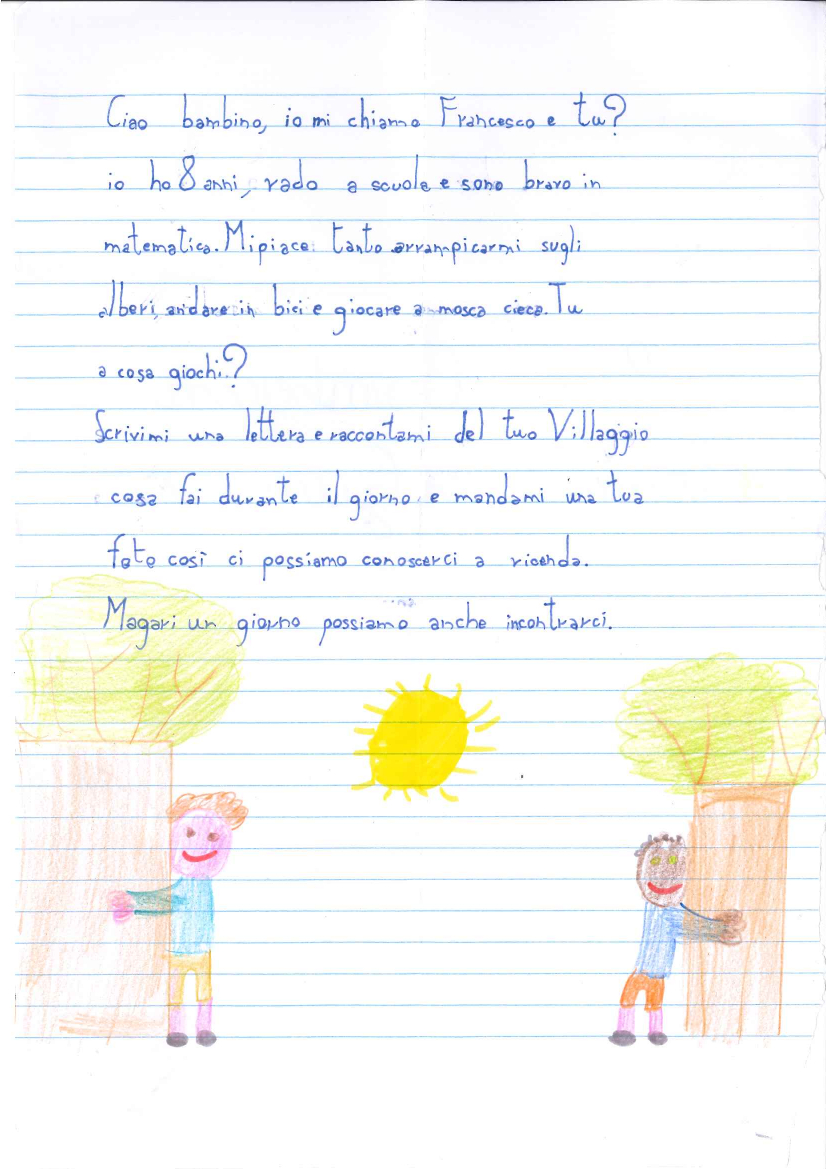 Ciao bambino, io mi chiamo Francesco e tu?
io ho 8 anni, vado a scuola e sono bravo in
matematica. Mi piace tanto arrampicarmi sugli
alberi, andare in bici e giocare a mosca cieca. Tu
a cosa giochi?
Scrivimi una lettera e raccontami del tuo Villaggio
cosa fai durante il giorno e mandami una tua
foto così ci possiamo conoscerci a vicenda.
Magari un giorno possiamo anche incontrarci.